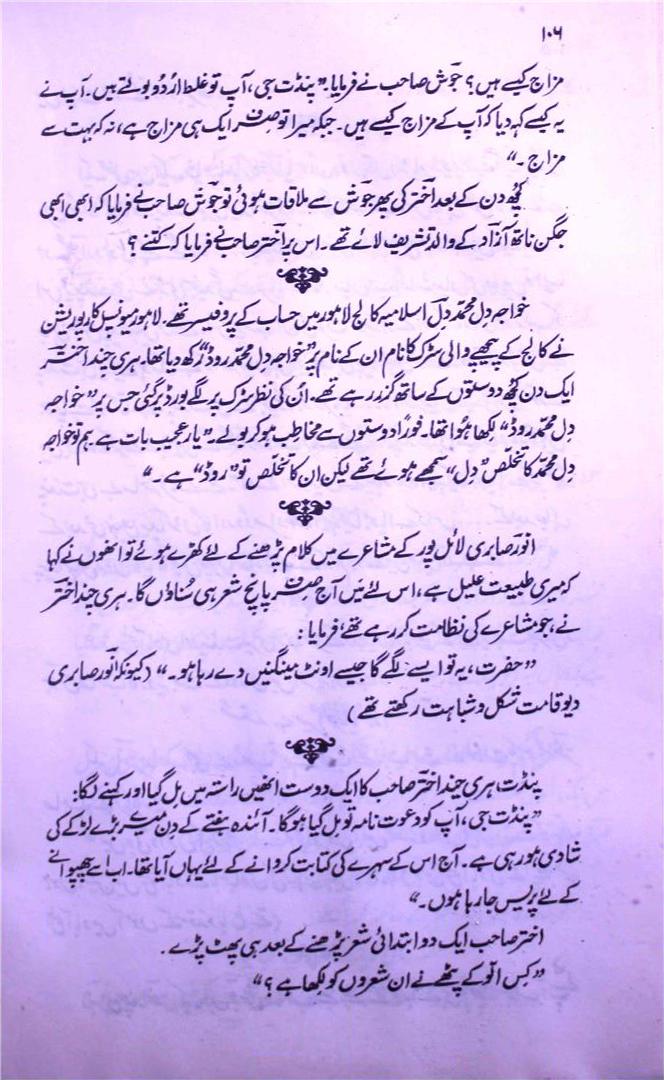 ۱۰۶
مزاج کیسے ہیں؟ جوؔش صاحب نے فرمایا۔ ”پنڈت جی، آپ تو غلط اردو بولتے ہیں۔ آپ نے
یہ کیسے کہہ دیا کہ آپ کے مزاج کیسے ہیں۔ جبکہ میرا تو صرف ایک ہی مزاج ہے، نہ کہ بہت سے
مزاج۔“
کچھ دن کے بعد اختر کی پھر جوؔش سے ملاقات ہوئی تو جوؔش صاحب نے فرمایا کہ ابھی ابھی
جگن ناتھ آزاؔد کے والد تشریف لائے تھے۔ اس پر اختؔر صاحب نے فرمایا کہ کتنے؟
خواجہ دل محمد دؔل اسلامیہ کالج لاہور میں حساب کے پروفیسر تھے۔ لاہور میونسپل کارپوریشن
نے کالج کے پیچھے والی سڑک کا نام ان کے نام پر ”خواجہ دل محمد روڈ“ رکھ دیا تھا۔ ہری چند اختؔر
ایک دن کچھ دوستوں کے ساتھ گزر رہے تھے۔ اُن کی نظر سڑک پر لگے بورڈ پر گئی جس پر ”خواجہ
دل محمد روڈ“ لکھا ہوا تھا۔ فوراً دوستوں سے مخاطب ہو کر بولے۔ ”یار عجیب بات ہے ہم تو خواجہ
دل محمد کا تخلص ”دل“ سمجھے ہوئے تھے لیکن ان کا تخلص تو ”روڈ“ ہے۔“
انوؔر صابری لائل پور کے مشاعرے میں کلام پڑھنے کے لئے کھڑے ہوئے تو انھوں نے کہا
کہ میری طبیعت علیل ہے، اس لئے میں آج صرف پانچ شعر ہی سُناؤں گا۔ ہری چند اختؔر
نے، جو مشاعرے کی نظامت کر رہے تھے، فرمایا :
”حضرت، یہ تو ایسے لگے گا جیسے اونٹ مینگنیں دے رہا ہو۔“ (کیونکہ انوؔر صابری
دیو قامت شکل و شباہت رکھتے تھے)
پنڈت ہری چند اختؔر صاحب کا ایک دوست انھیں راستہ میں مل گیا اور کہنے لگا:
”پنڈت جی، آپ کو دعوت نامہ تو مل گیا ہوگا۔ آئندہ ہفتے کے دن میرے بڑے لڑکے کی
شادی ہو رہی ہے۔ آج اس کے سہرے کی کتابت کروانے کے لئے یہاں آیا تھا۔ اب اسے چھپوانے
کے لئے پریس جا رہا ہوں۔“
اختر صاحب ایک دو ابتدائی شعر پڑھنے کے بعد ہی پھٹ پڑے۔
”کس الّو کے پٹھے نے ان شعروں کو لکھا ہے؟“